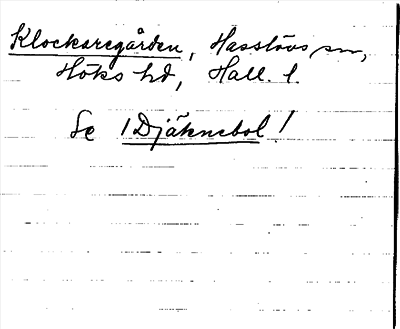 Klockaregården, Hasslövs sn,
Höks hd, Hall. l.
Se 1 Djäknebol !